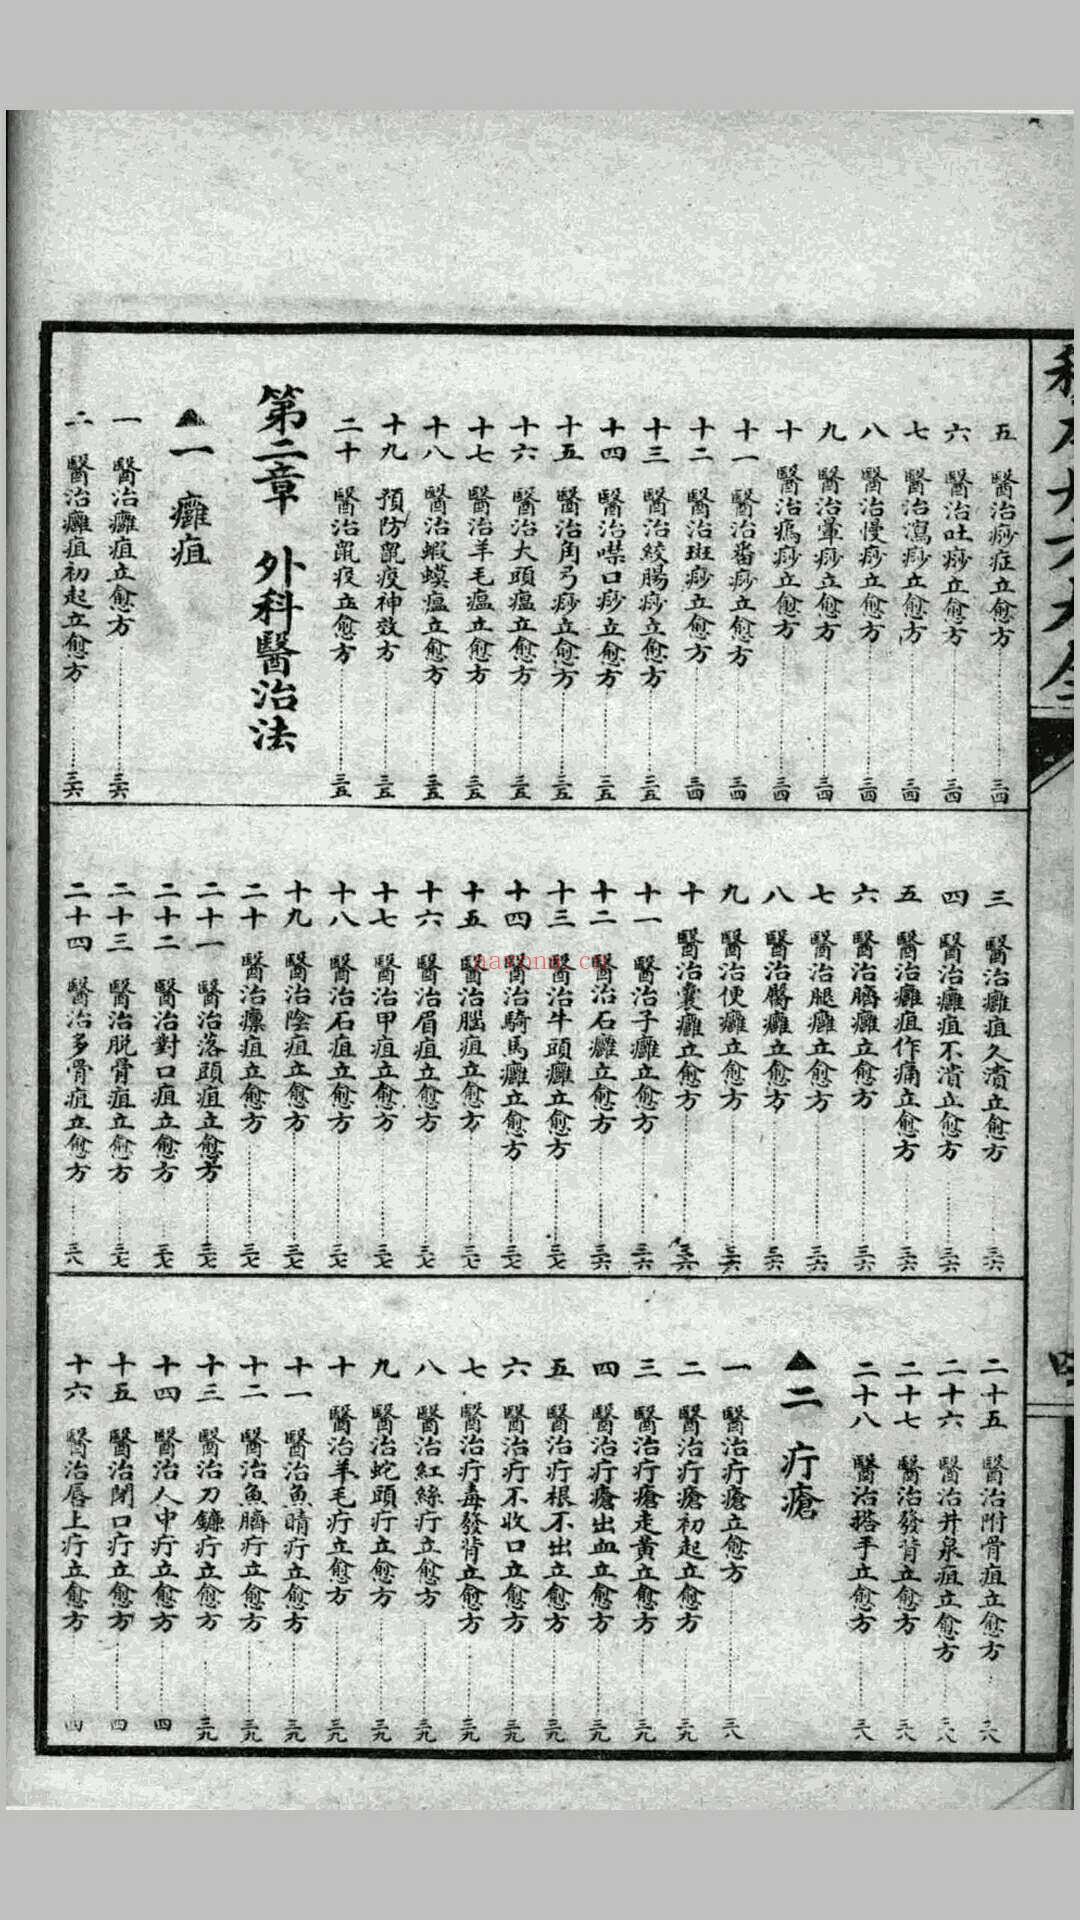 五 醫治痧症立愈方 三四
六 醫治吐痧立愈方 三四
七 醫治瀉痧立愈方 三四
八 醫治慢痧立愈方 三四
九 醫治暈痧立愈方 三四
十 醫治瘟痧立愈方 三四
十一 醫治番痧立愈方 三四
十二 醫治斑痧立愈方 三四
十三 醫治絞腸痧立愈方 三五
十四 醫治噤口痧立愈方 三五
十五 醫治角弓痧立愈方 三五
十六 醫治大頭瘟立愈方 三五
十七 醫治羊毛瘟立愈方 三五
十八 醫治蝦蟆瘟立愈方 三五
十九 預防鼠疫神效方 三五
二十 醫治鼠疫立愈方 三五
第二章 外科醫治法
▲一 癰疽
一 醫治癰疽立愈方 三六
二 醫治癰疽初起立愈方 三六
三 醫治癰疽久潰立愈方 三六
四 醫治癰疽不潰立愈方 三六
五 醫治癰疽作痛立愈方 三六
六 醫治臍癰立愈方 三六
七 醫治腿癰立愈方 三六
八 醫治臀癰立愈方 三六
九 醫治便癰立愈方 三六
十 醫治囊癰立愈方 三六
十一 醫治子癰立愈方 三六
十二 醫治石癰立愈方 三六
十三 醫治牛頭癰立愈方 三七
十四 醫治騎馬癰立愈方 三七
十五 醫治腦疽立愈方 三七
十六 醫治眉疽立愈方 三七
十七 醫治甲疽立愈方 三七
十八 醫治石疽立愈方 三七
十九 醫治陰疽立愈方 三七
二十 醫治瘭疽立愈方 三七
二十一 醫治落頭疽立愈方 三七
二十二 醫治對口疽立愈方 三七
二十三 醫治脫骨疽立愈方 三七
二十四 醫治多骨疽立愈方 三八
二十五 醫治附骨疽立愈方 三八
二十六 醫治井泉疽立愈方 三八
二十七 醫治發背立愈方 三八
二十八 醫治搭手立愈方 三八
▲二 疔瘡
一 醫治疔瘡立愈方 三八
二 醫治疔瘡初起立愈方 三九
三 醫治疔瘡走黃立愈方 三九
四 醫治疔瘡出血立愈方 三九
五 醫治疔根不出立愈方 三九
六 醫治疔不收口立愈方 三九
七 醫治疔毒發背立愈方 三九
八 醫治紅絲疔立愈方 三九
九 醫治蛇頭疔立愈方 三九
十 醫治羊毛疔立愈方 三九
十一 醫治魚睛疔立愈方 三九
十二 醫治魚臍疔立愈方 三九
十三 醫治刀鐮疔立愈方 三九
十四 醫治人中疔立愈方 四
十五 醫治閉口疔立愈方 四
十六 醫治唇上疔立愈方 四